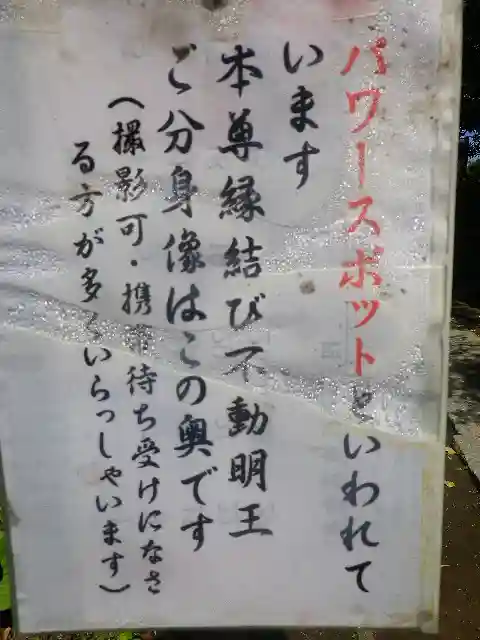 パワースポットといわれて
います
本尊縁結び不動明王
ご分身像はこの奥です
(撮影可・携帯待ち受けになさ
る方が多くいらっしゃいます)